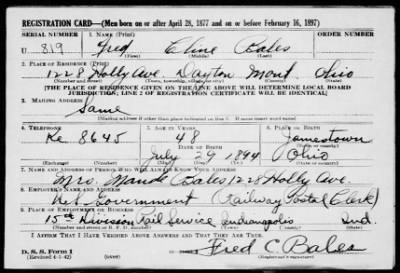 REGISTRATION CARD—(Men born on or after April 28, 1877 and on or before February 16, 1897)
SERIAL NUMBER 1. NAME (Print) ORDER NUMBER
U 819 Fred Cline Bales
(First) (Middle) (Last)
2. PLACE OF RESIDENCE (Print)
1228 Holly Ave. Dayton Mont. Ohio
(Number and street) (Town, township, village, or city) (County) (State)
[THE PLACE OF RESIDENCE GIVEN ON THE LINE ABOVE WILL DETERMINE LOCAL BOARD
JURISDICTION; LINE 2 OF REGISTRATION CERTIFICATE WILL BE IDENTICAL]
3. MAILING ADDRESS
Same
[Mailing address if other than place indicated on line 2. If same insert word same]
4. TELEPHONE 5. AGE IN YEARS 6. PLACE OF BIRTH
Ke 8645 48 Jamestown
DATE OF BIRTH (Town or county)
July 29 1894 Ohio
(Exchange) (Number) (Mo.) (Day) (Yr.) (State or country)
7. NAME AND ADDRESS OF PERSON WHO WILL ALWAYS KNOW YOUR ADDRESS
Mrs Maude Bales 1228 Holly Ave.
8. EMPLOYER'S NAME AND ADDRESS
Government (Railway Postal Clerk)
9. PLACE OF EMPLOYMENT OR BUSINESS
15th Division Rail Service Indianapolis Ind.
(Number and street or R. F. D. number) (Town) (County) (State)
I AFFIRM THAT I HAVE VERIFIED ABOVE ANSWERS AND THAT THEY ARE TRUE.
Fred C Bales
D. S. S. Form 1
(Revised 4-1-42) (over) (Registrant's signature)